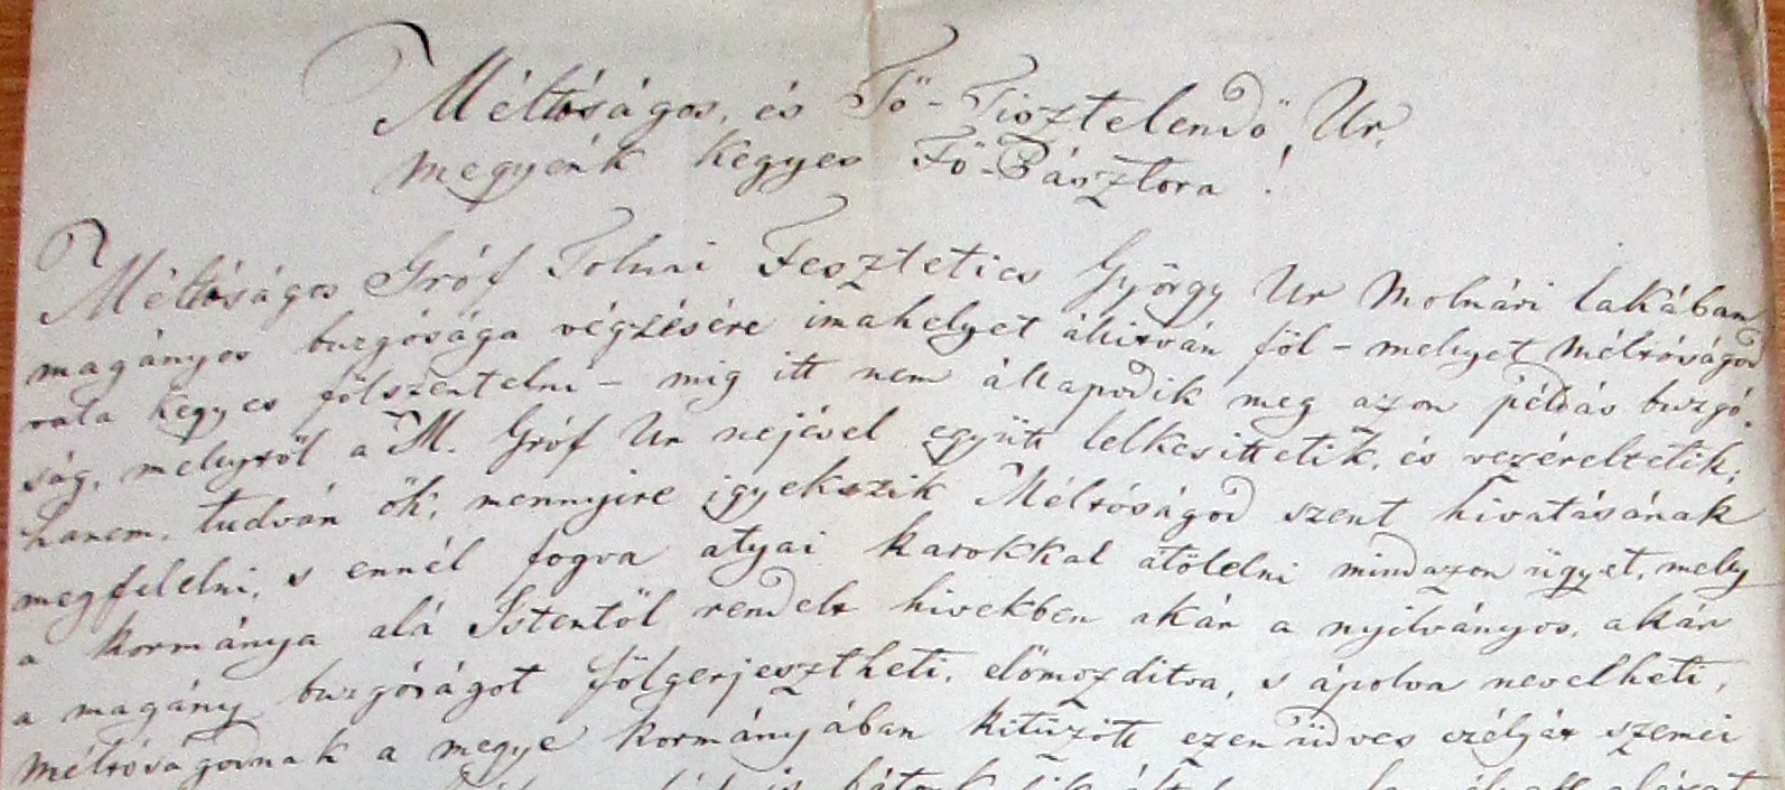 Méltóságos, és Fö-Tisztelendö, Ur,
megyénk kegyes Fö-Pásztora!
Méltóságos Gróf Tolnai Fesztetics György Ur Molnári lakában
magányos buzgósága végzésére imahelyet állitván föl – melyet Méltóságod
vala kegyes fölszentelni – mig itt nem állapodik meg azon példás buzgó-
ság, melytöl a M. Gróf Ur nejével együtt lelkesittetik, és vezéreltetik;
hanem, tudván ök, mennyire igyekszik Méltóságod szent hivatásának
megfelelni, s ennél fogva atyai karokkal átölelni mindazon ügyet, mely
a kormánya alá Istentöl rendelt hivekben akár a nyilványos, akár
a magány buzgóságot fölgerjesztheti, elömozditva, s ápolva nevelheti,
Méltóságodnak a megye kormányjában kitüzött ezen üdves czélját szemei